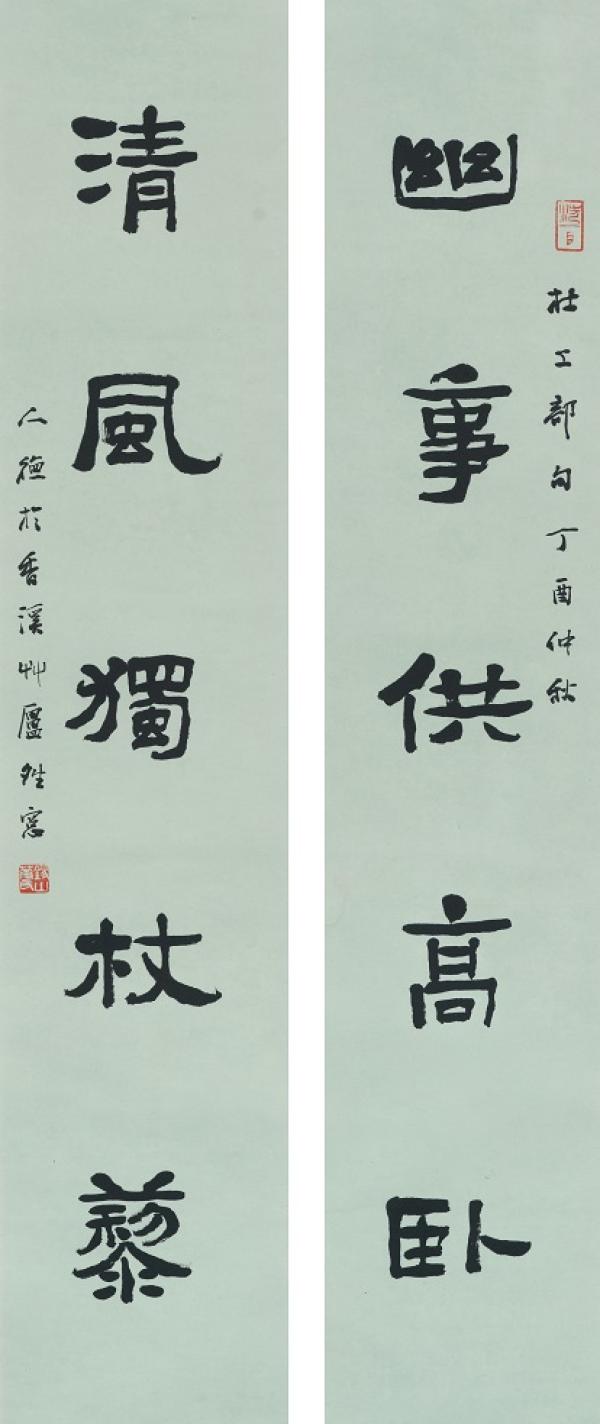 幽事供高卧
杜工部句丁酉仲秋
清風獨杖藜
仁德於香溪艸廬雞窓